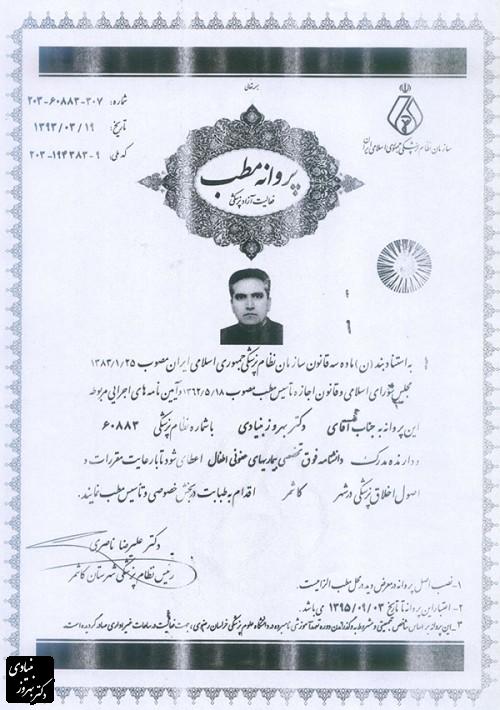 بسمه تعالی
شماره: ۲۰۳-۶۰۸۸۳-۳۰۷
تاریخ: ۱۳۹۳/۰۳/۱۹
کد ملی: ۲۰۳-۱۹۴۳۸۳-۹
سازمان نظام پزشکی جمهوری اسلامی ایران
پروانه مطب
فعالیت آزاد پزشکی
به استناد بند (ن) ماده سه قانون سازمان نظام پزشکی جمهوری اسلامی ایران مصوب ۱۳۸۳/۱/۲۵
مجلس شورای اسلامی و قانون اجازه تأسیس مطب مصوب ۱۳۶۲/۵/۱۸ و آیین نامه های اجرایی مربوطه
این پروانه به جناب آقای دکتر بهروز بنیادی با شماره نظام پزشکی ۶۰۸۸۳
و دارنده مدرک دانشنامه فوق تخصصی بیماریهای عفونی اطفال اعطا می شود تا با رعایت مقررات و
اصول اخلاق پزشکی در شهر کاشمر اقدام به طبابت در بخش خصوصی و تأسیس مطب نمایند.
دکتر علیرضا ناصری
رئیس نظام پزشکی شهرستان کاشمر
۱- نصب اصل پروانه در معرض دید در محل مطب الزامیست.
۲- اعتبار این پروانه تا تاریخ ۱۳۹۵/۰۹/۰۳ می باشد.
۳- این پروانه بر اساس شاخص جمعیتی و مشروط به گذراندن دوره تعهد آموزشی نامبرده در دانشگاه علوم پزشکی خراسان رضوی، جهت فعالیت در ساعات غیر اداری صادر گردیده است
دکتر بهروز بنیادی